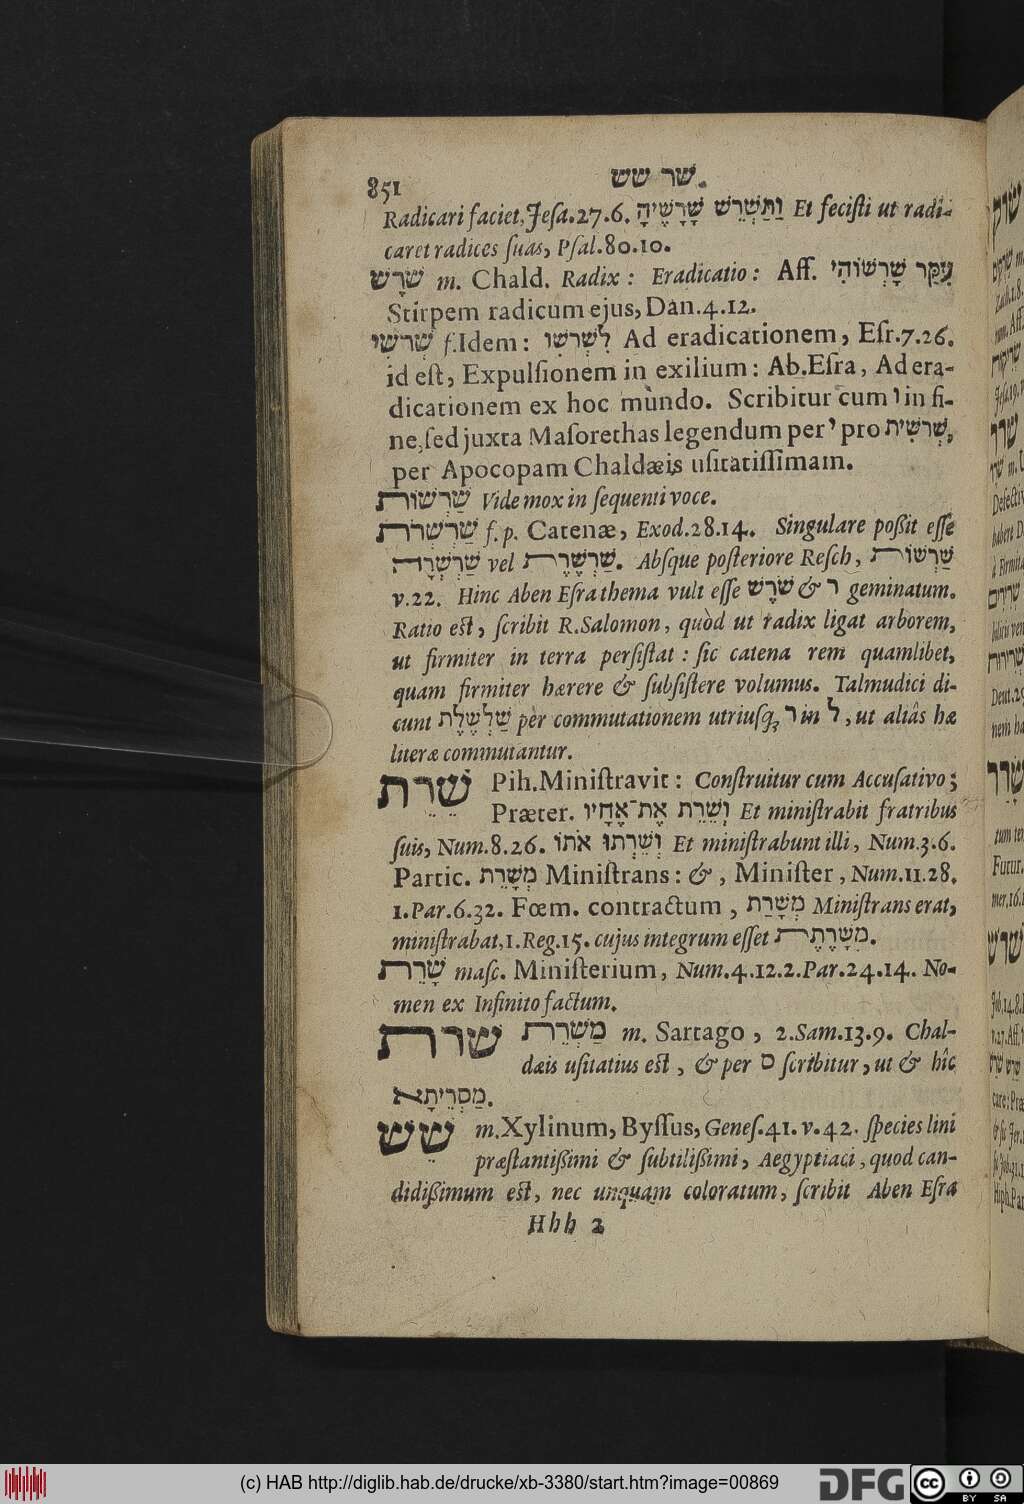 851 שר שש.
Radicari faciet, Jesa.27.6. וַתַּשְׁרֵשׁ שָׁרָשֶׁיהָ Et fecisti ut radi-
caret radices suas, Psal.80.10.
שֹׁרֶשׁ m. Chald. Radix: Eradicatio: Aff. עִקַּר שָׁרְשׁוֹהִי
Stirpem radicum ejus, Dan.4.12.
שְׁרֹשִׁי f.Idem: לִשְׁרֹשִׁו Ad eradicationem, Esr.7.26.
id est, Expulsionem in exilium: Ab.Esra, Ad era-
dicationem ex hoc mundo. Scribitur cum ו in fi-
ne, sed juxta Masorethas legendum per י pro שְׁרֹשִׁית,
per Apocopam Chaldæis usitatissimam.
שַׁרְשׁוֹת Vide mox in sequenti voce.
שַׁרְשְׁרֹת f.p. Catenæ, Exod.28.14. Singulare poßit esse
שַׁרְשְׁרָה vel שַׁרְשֶׁרֶת. Absque posteriore Resch, שַׁרְשׁוֹת
v.22. Hinc Aben Esra thema vult esse שֹׁרֶשׁ & ר geminatum.
Ratio est, scribit R.Salomon, quòd ut radix ligat arborem,
ut firmiter in terra persistat: sic catena rem quamlibet,
quam firmiter hærere & subsistere volumus. Talmudici di-
cunt שַׁלְשֶׁלֶת per commutationem utriusq; ר in ל, ut aliâs hæ
literæ commutantur.
שֵׁרֵת Pih. Ministravit: Construitur cum Accusativo;
Præter. וְשֵׁרֵת אֶת־אֶחָיו Et ministrabit fratribus
suis, Num.8.26. וְשֵׁרְתוּ אֹתוֹ Et ministrabunt illi, Num.3.6.
Partic. מְשָׁרֵת Ministrans: &, Minister, Num.11.28.
1.Par.6.32. Fœm. contractum, מְשָׁרַת Ministrans erat,
ministrabat, 1.Reg.15. cujus integrum esset מְשָׁרֶתֶת.
שָׁרֵת masc. Ministerium, Num.4.12.2.Par.24.14. No-
men ex Infinito factum.
שרת מַשְׂרֵת m. Sartago, 2.Sam.13.9. Chal-
dæis usitatius est, & per ס scribitur, ut & hîc
מַסְרֵיתָא.
שֵׁשׁ m. Xylinum, Byssus, Genes.41.v.42. species lini
præstantißimi & subtilißimi, Aegyptiaci, quod can-
didißimum est, nec unquam coloratum, scribit Aben Esra
Hhh 2
(c) HAB http://diglib.hab.de/drucke/xb-3380/start.htm?image=00869
DFG
cc
BY SA